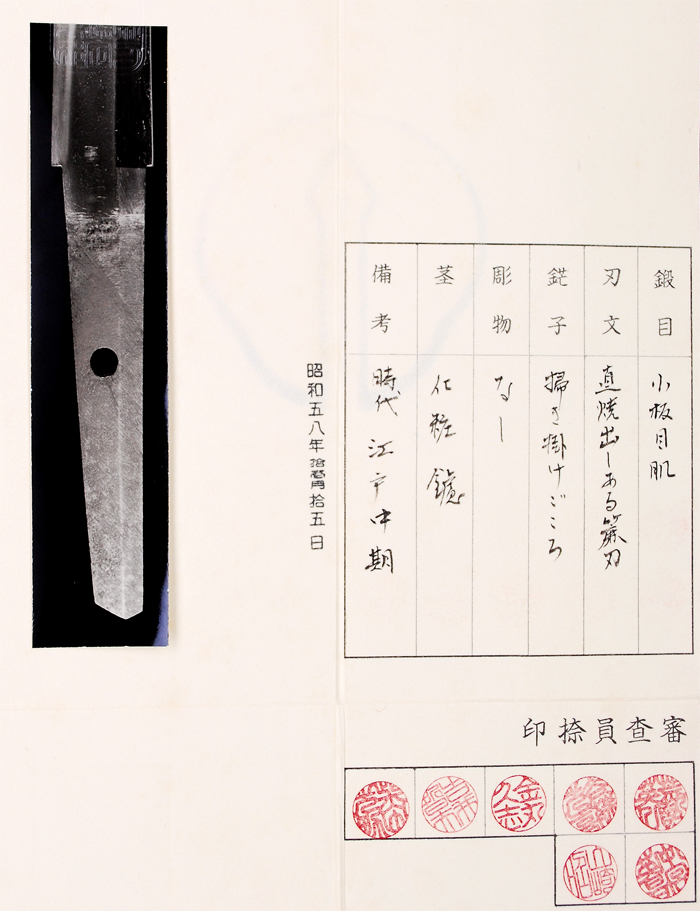 鍛目 小板目肌
刃文 直焼出しある簾刃
鋩子 掃き掛けごころ
彫物 なし
茎 化粧鑢
備考 時代 江戸中期
昭和五八年拾壱月拾五日
審査員捺印